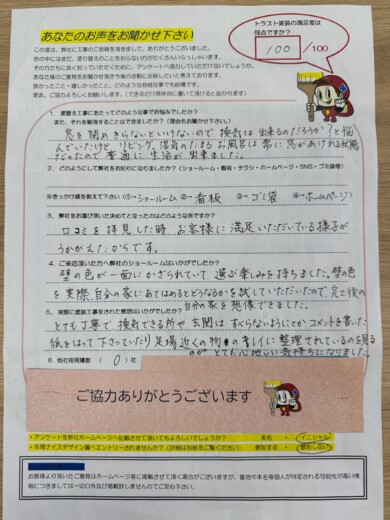 あなたのお声をお聞かせ下さい
トラスト塗装の満足度は
何点ですか?
100 /100
この度は、弊社に工事のご依頼を頂きまして、ありがとうございました。
世の中にはまだ、塗り替えのことを知らない方がたくさんいらっしゃいます。
その方たちに良く知っていただくために、アンケートへ協力していただけないでしょうか。
あなた様のご意見をお聞かせ頂き今後の活動に活かしたいと考えております。
良かったこと・嬉しかったこと、どのような些細な事でも結構です。
是非、ご協力よろしくお願いします。(できるだけ具体的に書いて頂けると助かります)
1、塗替え工事にあたってどのような事でお悩みでしたか?
また、それを解消することはできましたか?(理由もお聞かせ下さい)
窓を閉めきらないといけないので換気は出来るのだろうか?と悩
んでいたけど、リビング、湿気のたまるお風呂は常に窓があけれる状態
だったので普通に生活が出来ました。
2、どのようにして弊社をお知りになりましたか?(ショールーム・看板・チラシ・ホームページ・SNS・ゴミ袋等)
※きっかけ順を教えて下さい(①→ショールーム ②→看板 ③→ゴミ袋 ④→ホームページ)
3、弊社をお選び頂いた決めてとなったのはどのような所ですか?
口コミを拝見した時、お客様に満足いただいている様子が
うかがえたからです。
4、ご来店頂いた方へ弊社のショールームはいかがでしたか?
壁の色が一面にかざられていて選ぶ楽しみを持ちました。壁の色
を実際、自分の家にあてはめるとどうなるかを試していただいたので完工後の
自分の家を想像できました。
5、実際に塗装工事をされた感想はいかがでしたか?
とても丁寧で換気できる所や玄関はすべらないようにとかコメントを書いた
紙をはって下さっていたり足場近くの物もキレイに整理されているのを見る
のがとても心地いい気持ちになりました。
6、他社相見積数 ( 0 )社
ご協力ありがとうございます
・アンケートを弊社ホームページへ記載させて頂いてもよろしいでしょうか? 実名 ・ イニシャル
・年間ナイスデザイン賞へエントリーされませんか?(詳細は別紙をご覧ください) 参加する ・ 参加しない
お客様より頂いたご意見はホームページ等に掲載させて頂く場合がございますが、番地や本名等個人が特定される可能性が高い情
報につきましては一切口外及び掲載致しませんのでご安心下さい。